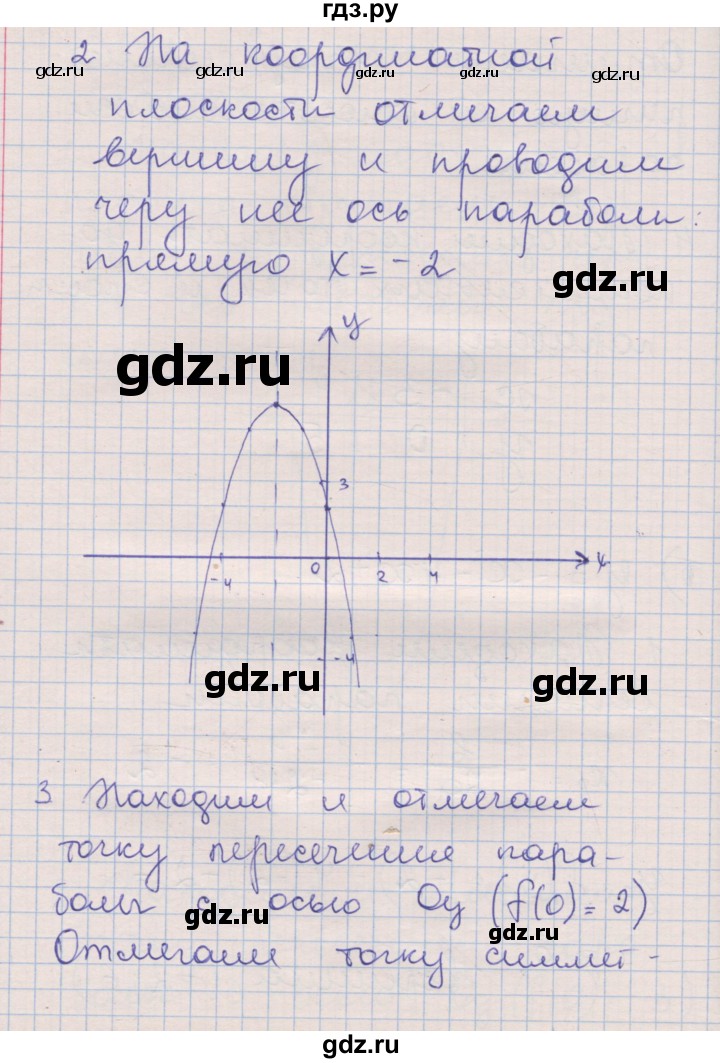 гдз.ру
2 На координатной
gdz.ru gdz.ru gdz.ru gdz.ru
плоскости отмечаем
вершину и проводим
gdz.ru
через нее ось параболы:
прямую x = -2
gdz.ru
y
gdz.ru
3
-4 0 2 4 x
-4
gdz.ru
gdz.ru
3 Находим и отмечаем
точку пересечения пара-
болы с осью Oy (f(0) = 2)
gdz.ru
gdz.ru
Отмечаем точку симмет-
gdz.ru